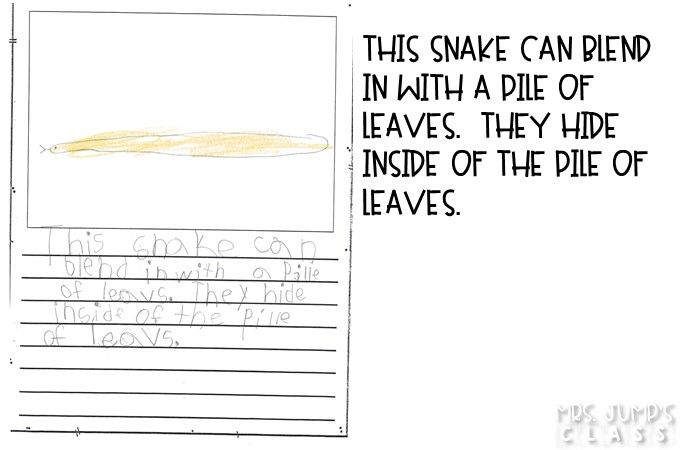 This snake can
blend in with a pille
of leavs. They hide
inside of the pille
of leavs.
THIS SNAKE CAN BLEND
IN WITH A PILE OF
LEAVES. THEY HIDE
INSIDE OF THE PILE OF
LEAVES.
MRS. JUMP'S
CLASS